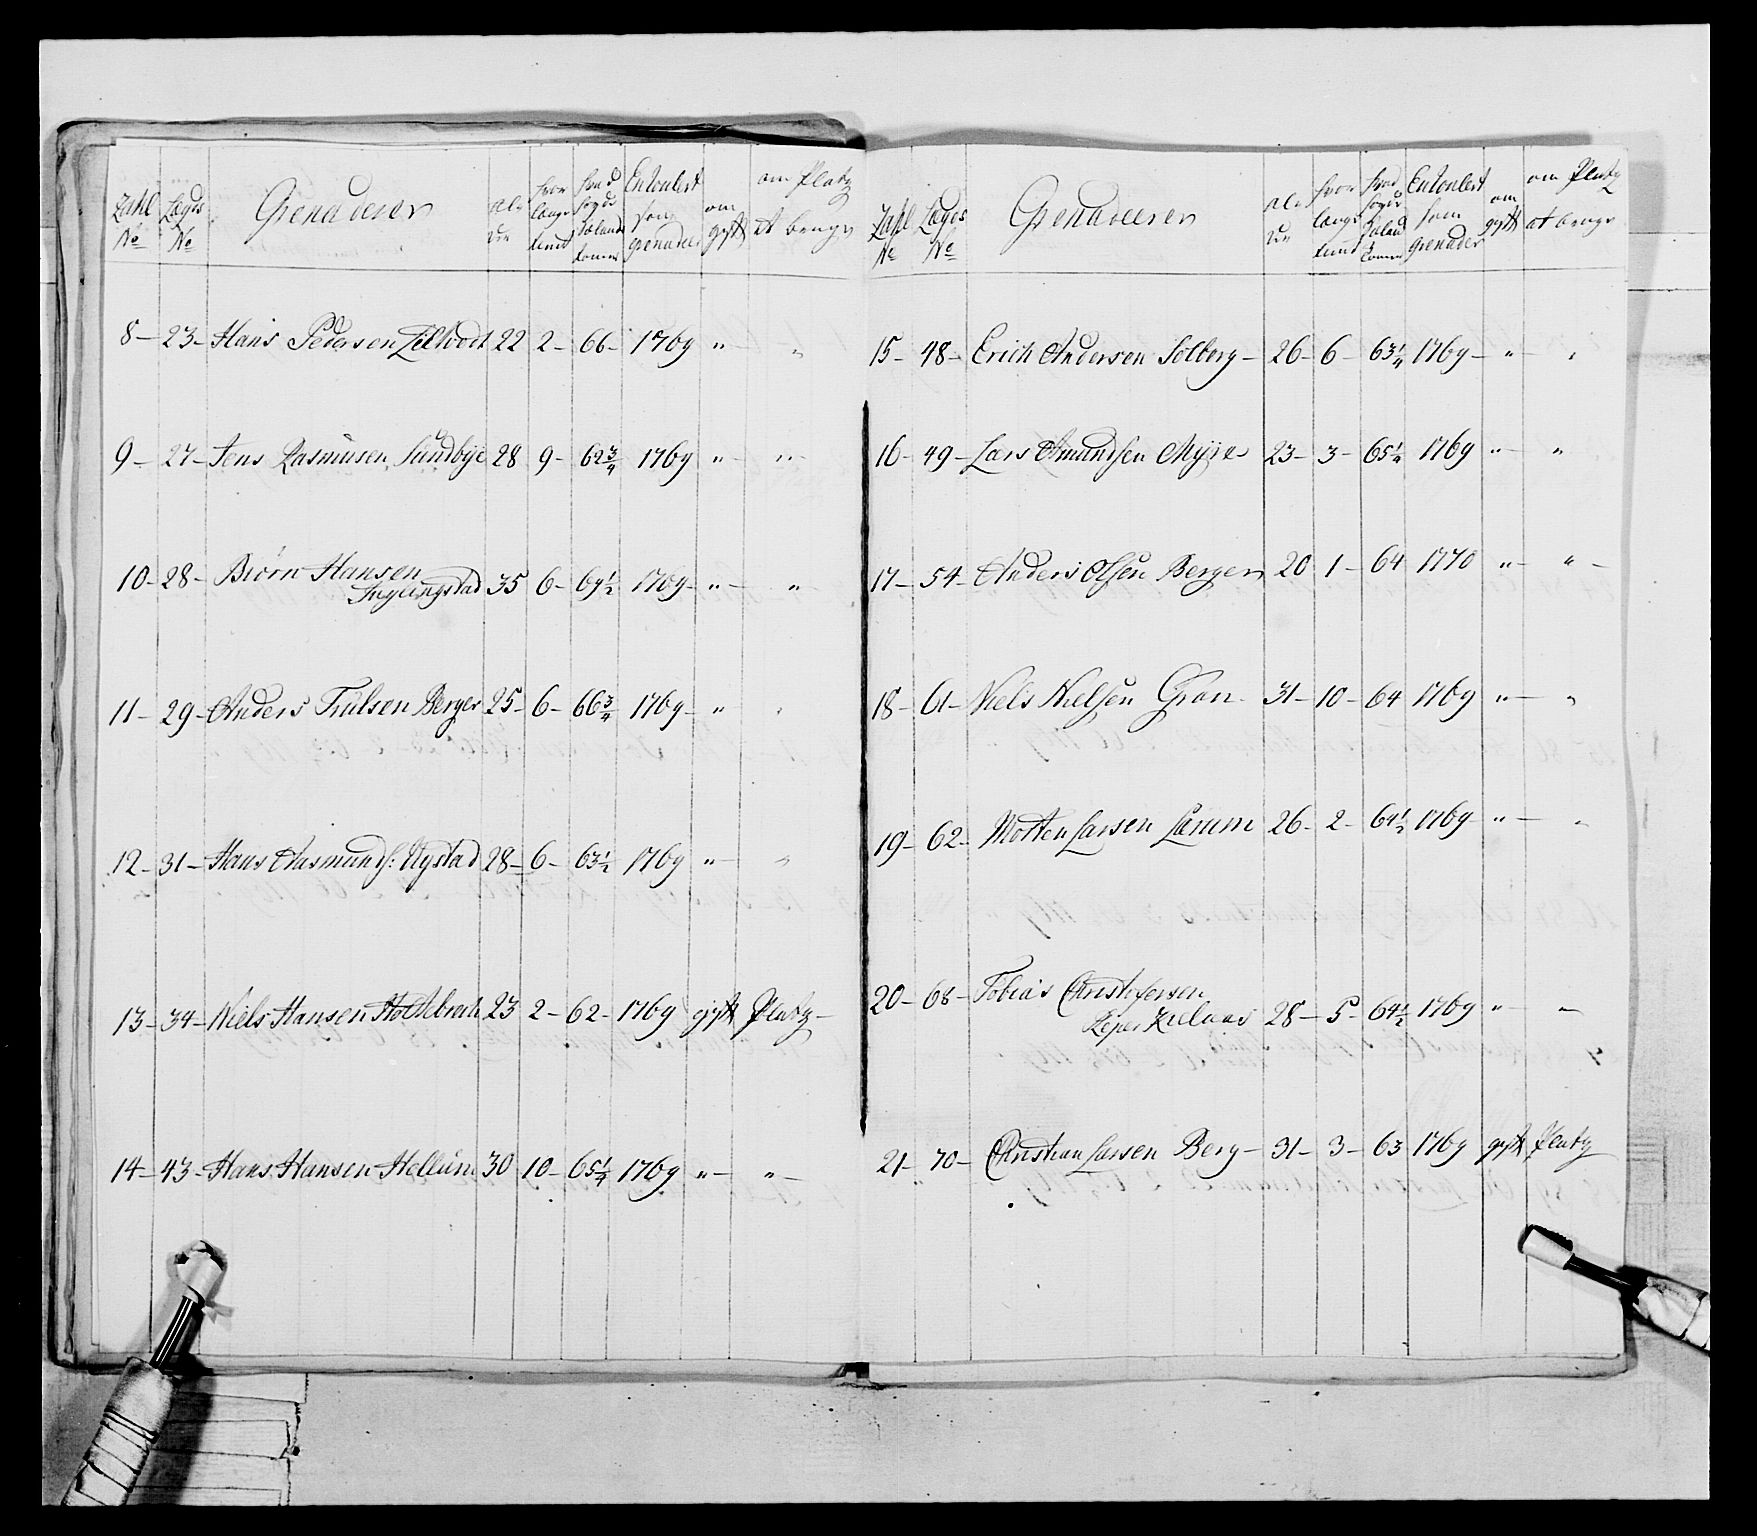 Zahl No Lægds No Grenaderer alder hvor lange tient Enroulert som grenadeer om gift om Platz at bruge
8 – 23 – Hans Pedersen 22 2 – 66 – 1769 " – "
9 – 27 – Jens Rasmusen Sundbÿe 28 9 – 62 3/4 1769 " – " –
10 – 28 – Biörn Hansen
Inglingstad 35 6 – 64 1/2 1769 – " – "
11 – 29 – Anders Trulsen Berger 25 – 6 – 66 3/4 1769 – " – "
12 – 31 – Hans Aasmunds: Nÿstad 28 – 6 – 63 1/2 1769 " – "
13 – 34 – Niels Hansen 23 2 – 62 – 1769 gift Platz –
14 – 43 – Hans Hansen Hellum 30 10 – 65 1/4 1769 " – " –
Zahl No Lægds No Grenadeerer alder hvor lange tient Enroulert som Grenader om gift om Platz at bruge
15 – 48 – Erich Andersen Solberg – 26 – 6 – 63 1/4 1769 – " – "
16 – 49 – Lars Amundsen Mÿre 23 – 3 – 65 1/4 1769 " – "
17 – 54 – Anders Olsen Berger 20 1 – 64 1770 " – " –
18 – 61 – Niels Nielsen Gran – 31 – 10 – 64 1769 " – "
19 – 62 – Morten Larsen Lamm 26 – 2 – 64 1/2 1769 " – "
20 – 68 – Tobias Christofersen
28 – 5 – 64 1/2 1769 " – "
21 – 70 – Christian Larsen Berg – 31 – 3 – 63 1769 gift Platz